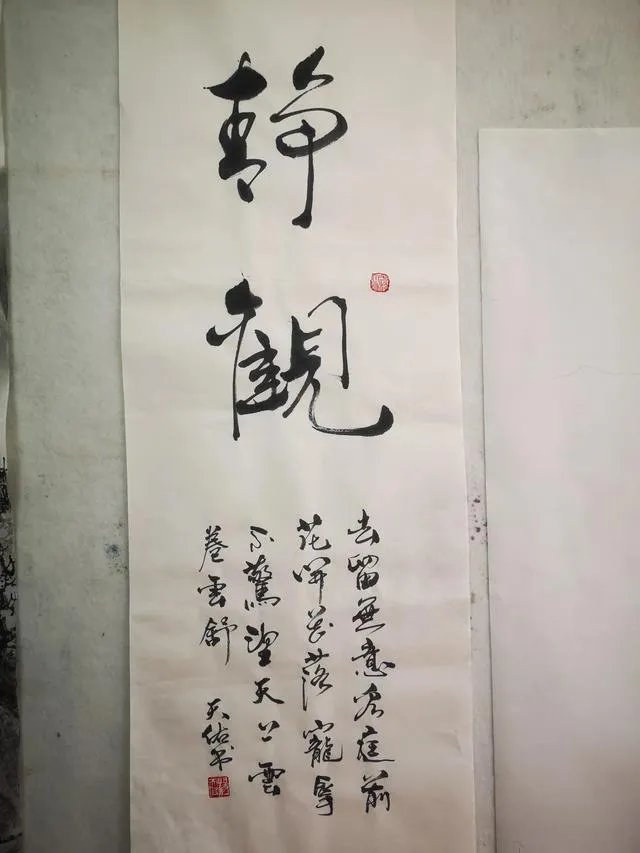 静觀
去留無意看庭前
花開花落寵辱
不驚望天上雲
卷雲舒
天佑书